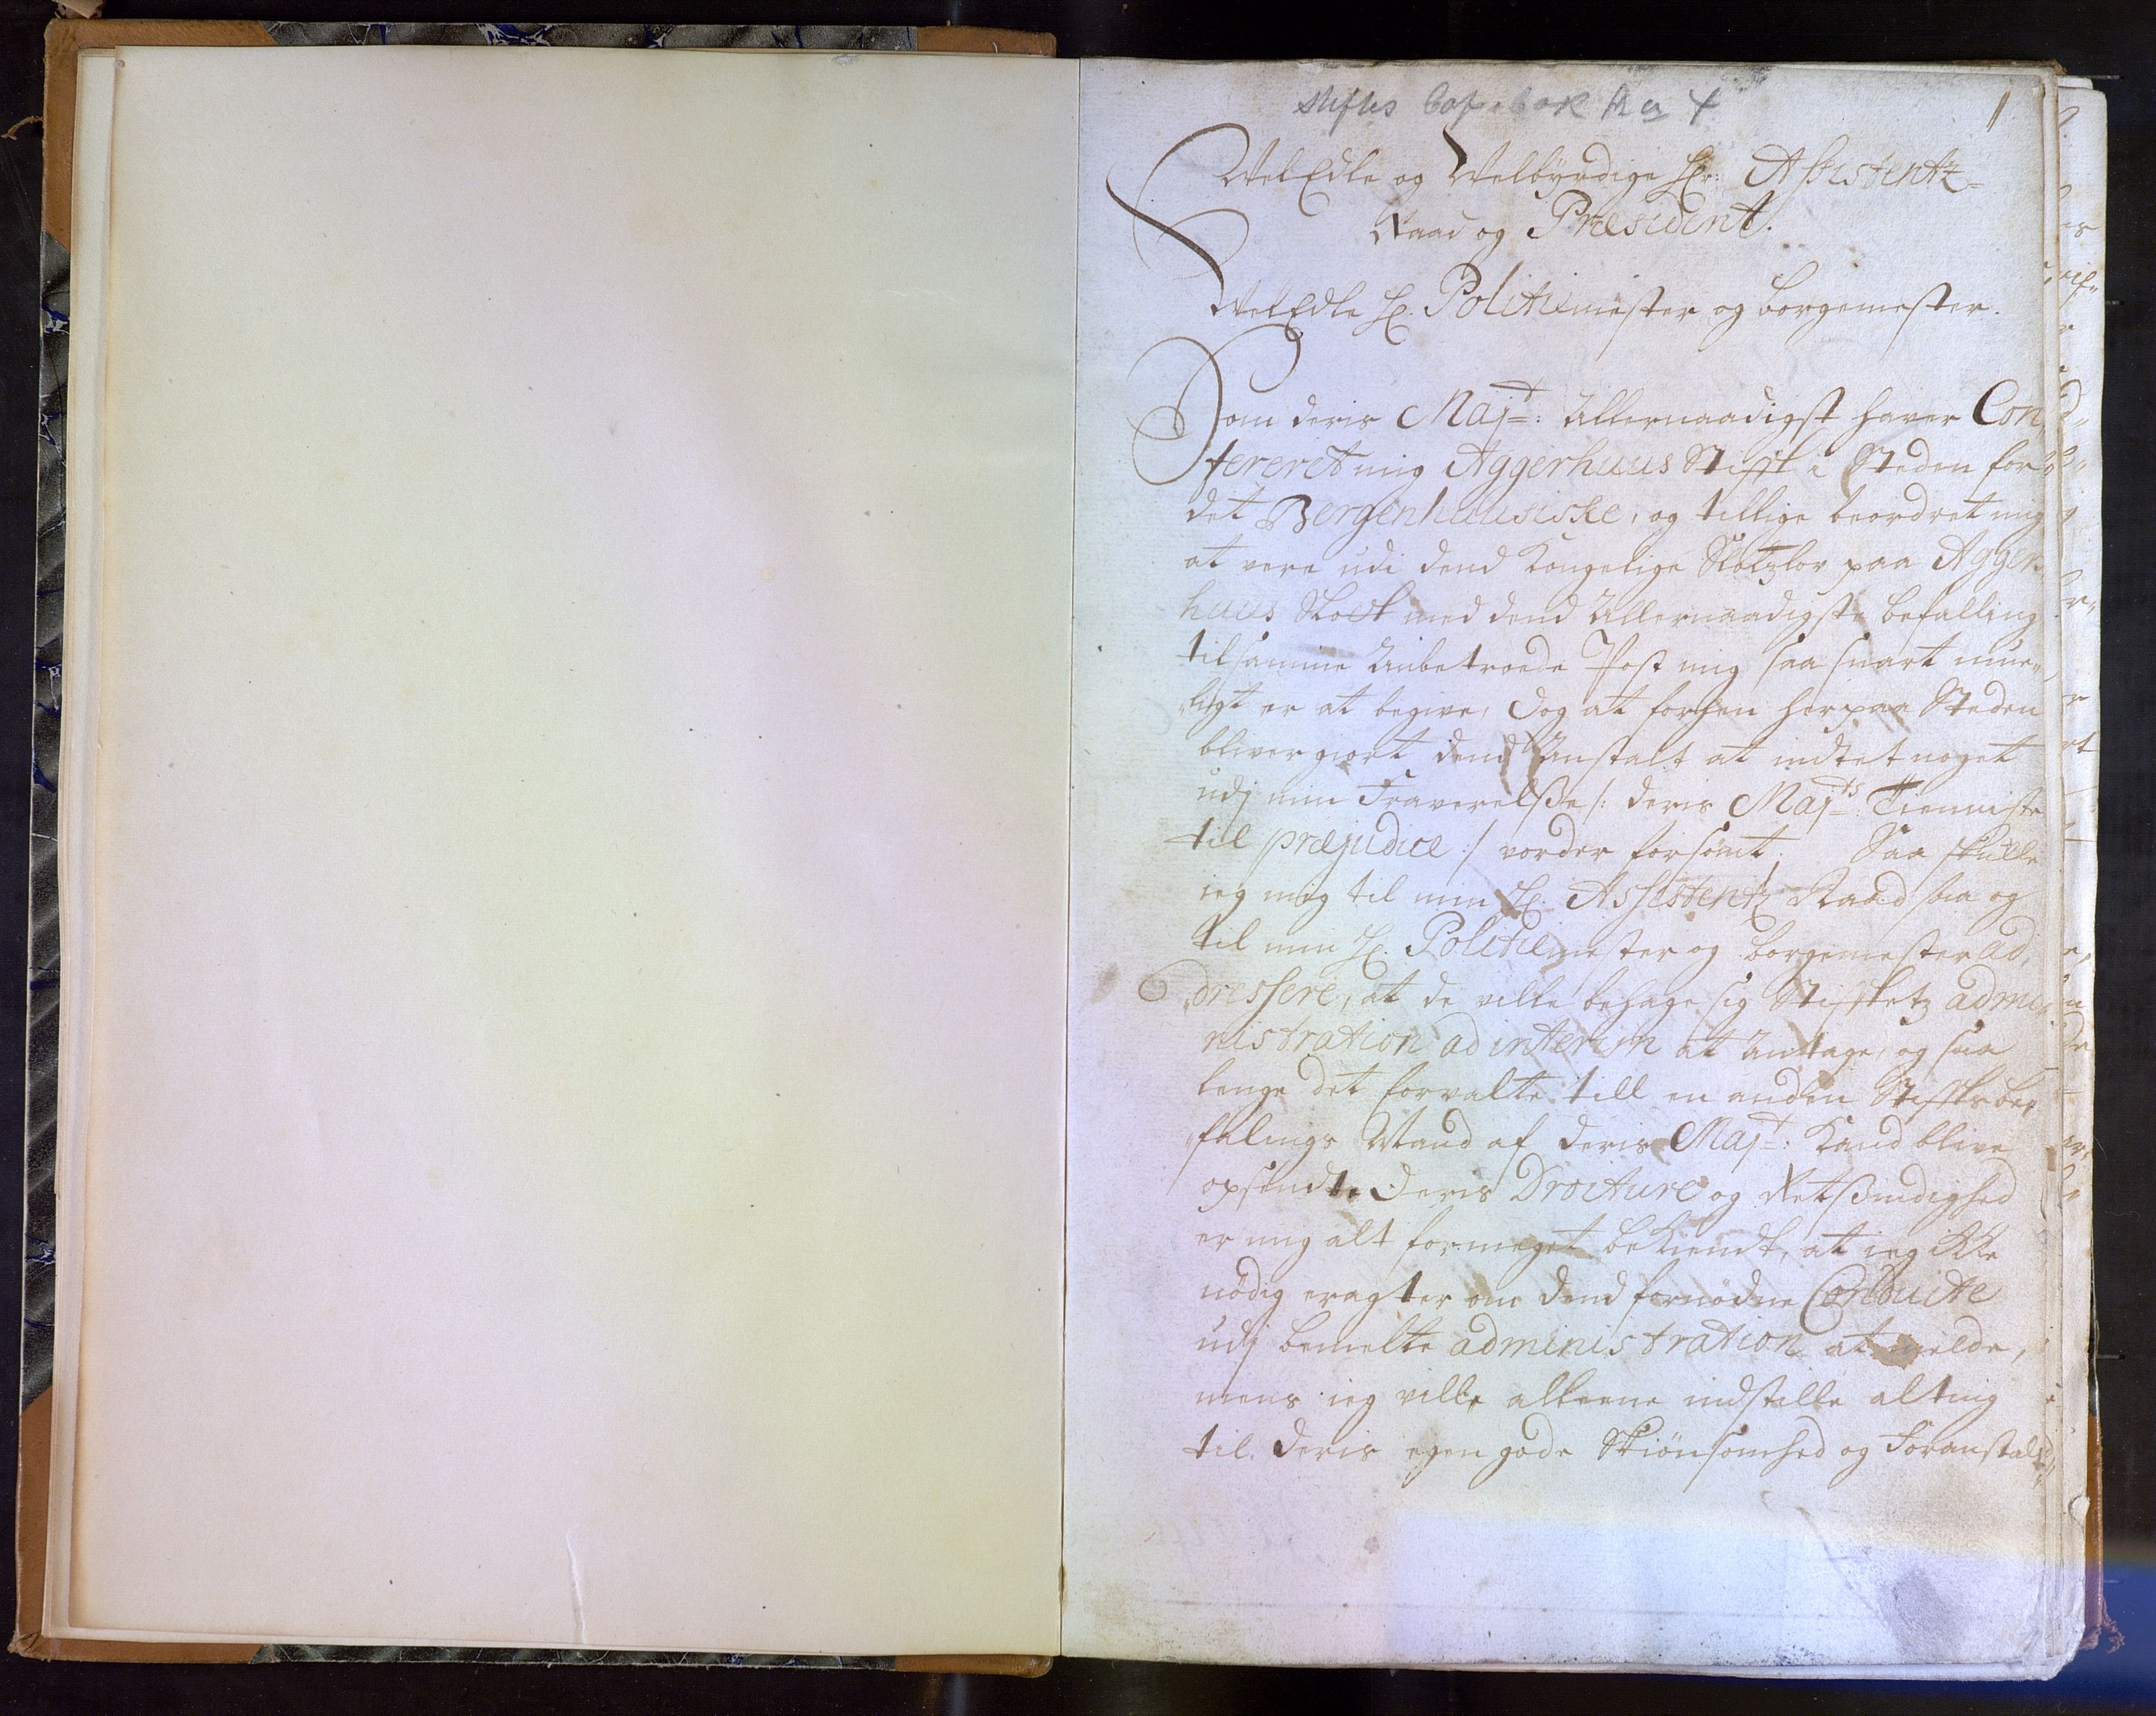 Stifts Cop. bok No 4
1
WelEdle og Welbyrdige Hr: Assistentz-
Raad og Præsident.
WelEdle H. Politiemester og borgemester.
Som deris Majt: Allernaadigst haver Con,
fereret mig Aggerhuus Stift i Steden for
det Bergenhuusiske, og tillige beordret mig
at være udi dend Kongelige Slotzlov paa Agger
huus Slost med dend Allernaadigste befalling
til samme Anbetroede Post mig saa snart mue„
„ligt er at begive, dog at forhen her paa Steden
bliver giort dend Anstalt at indtet noget
udj min Fraverelsse /: deris Majts: Tienniste
til præjudice :/ vorder forsømt; Saa skulle
ieg mig til min H. Assistentz Raad saa og
til min H. Politiemester og borgemester ad,
„dressere, at de ville behage sig Stiftetz admi„
nistration ad interim at Antage, og saa
lenge det forvalte till en anden Stiftsbe„
falings Mand af deris Majt: Kand blive
opsendt. Deris Droiture og Retsindighed
er mig alt formeget bekiendt, at ieg ikke
nødig eragter om dend fornødne Conduite
udj bemelte administration at melde,
mens ieg ville alleene indstille alting
til deris egen gode Skiønsomhed og Foranstalt„